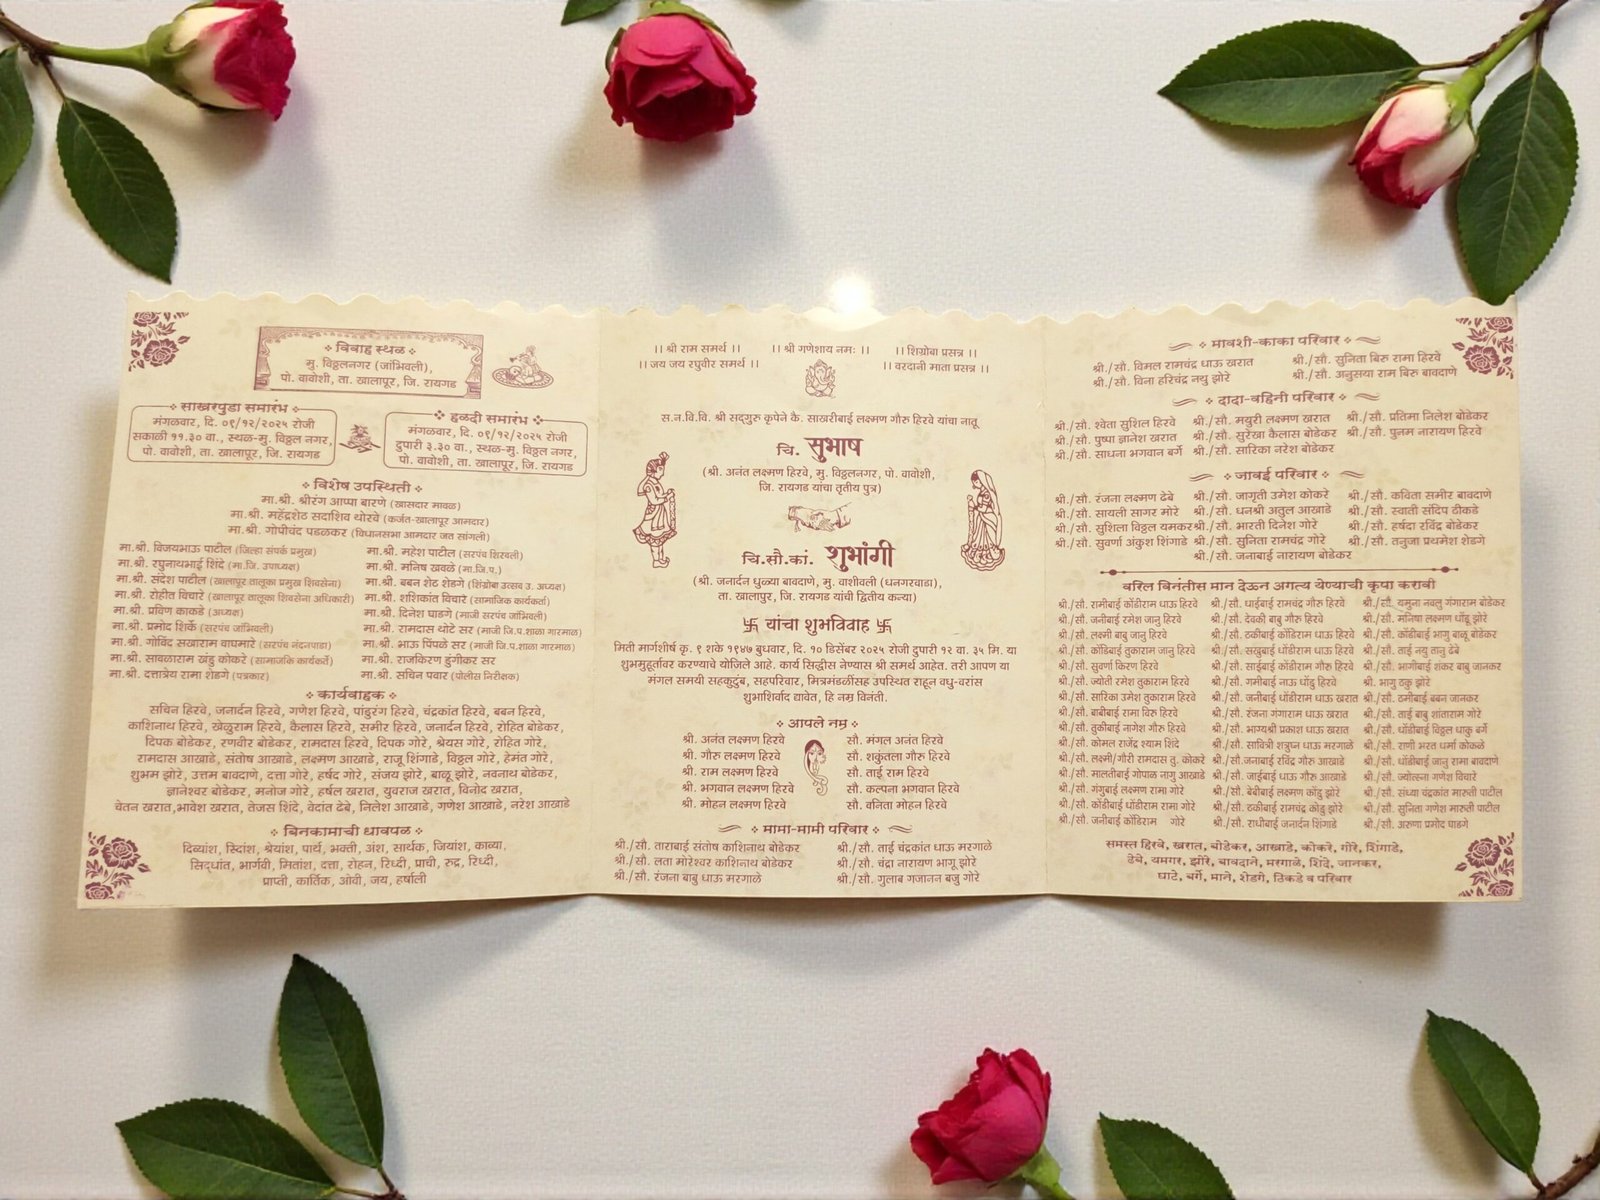 विवाह स्थळ
मु. विठ्ठलनगर (जांभिवली),
पो. वावोशी, ता. खालापूर, जि. रायगड
साखरपुडा समारंभ
मंगळवार, दि. ०९/१२/२०२५ रोजी
सकाळी ११.३० वा., स्थळ-मु. विठ्ठल नगर,
पो. वावोशी, ता. खालापूर, जि. रायगड
हळदी समारंभ
मंगळवार, दि. ०९/१२/२०२५ रोजी
दुपारी ३.३० वा., स्थळ-मु. विठ्ठल नगर,
पो. वावोशी, ता. खालापूर, जि. रायगड
विशेष उपस्थिती
मा.श्री. श्रीरंग आप्पा बारणे (खासदार मावळ)
मा.श्री. महेंद्रशेठ सदाशिव थोरवे (कर्जत-खालापूर आमदार)
मा.श्री. गोपीचंद पडळकर (विधानसभा आमदार जत सांगली)
मा.श्री. विजयभाऊ पाटील (जिल्हा संपर्क प्रमुख)
मा.श्री. रघुनाथभाई शिंदे (मा.जि. उपाध्यक्ष)
मा.श्री. संदेश पाटील (खालापूर तालूका प्रमुख शिवसेना)
मा.श्री. रोहीत विचारे (खालापूर तालूका शिवसेना अधिकारी)
मा.श्री. प्रविण काकडे (अध्यक्ष)
मा.श्री. प्रमोद शिर्के (सरपंच जांभिवली)
मा.श्री. गोविंद सखाराम वाघमारे (सरपंच नंदनपाडा)
मा.श्री. सावळाराम खंडु कोकरे (सामाजकि कार्यकर्ते)
मा.श्री. दत्तात्रेय रामा शेडगे (पत्रकार)
मा.श्री. महेश पाटील (सरपंच शिरवली)
मा.श्री. मनिष खवळे (मा.जि.प.)
मा.श्री. बबन शेठ शेडगे (शिंग्रोबा उत्सव उ. अध्यक्ष)
मा.श्री. शशिकांत विचारे (सामाजिक कार्यकर्ता)
मा.श्री. दिनेश घाडगे (माजी सरपंच जांभिवली)
मा.श्री. रामदास थोटे सर (माजी जि.प.शाळा गारमाळ)
मा.श्री. भाऊ पिंपळे सर (माजी जि.प.शाळा गारमाळ)
मा.श्री. राजकिरण हुंगीकर सर
मा.श्री. सचिन पवार (पोलीस निरीक्षक)
कार्यवाहक
सचिन हिरवे, जनार्दन हिरवे, गणेश हिरवे, पांडुरंग हिरवे, चंद्रकांत हिरवे, बबन हिरवे,
काशिनाथ हिरवे, खेळुराम हिरवे, कैलास हिरवे, समीर हिरवे, जनार्दन हिरवे, रोहित बोडेकर,
दिपक बोडेकर, रणवीर बोडेकर, रामदास हिरवे, दिपक गोरे, श्रेयस गोरे, रोहित गोरे,
रामदास आखाडे, संतोष आखाडे, लक्ष्मण आखाडे, राजू शिंगाडे, विठ्ठल गोरे, हेमंत गोरे,
शुभम झोरे, उत्तम बावदाणे, दत्ता गोरे, हर्षद गोरे, संजय झोरे, बाळू झोरे, नवनाथ बोडेकर,
ज्ञानेश्वर बोडेकर, मनोज गोरे, हर्षल खरात, युवराज खरात, विनोद खरात,
चेतन खरात,भावेश खरात, तेजस शिंदे, वेदांत ढेबे, निलेश आखाडे, गणेश आखाडे, नरेश आखाडे
बिनकामाची धावपळ
दिव्यांश, रिदांश, श्रेयांश, पार्थ, भक्ती, अंश, सार्थक, जियांश, काव्या,
सिद्धांत, भार्गवी, मितांश, दत्ता, रोहन, रिध्दी, प्राची, रुद्र, रिध्दी,
प्राप्ती, कार्तिक, ओवी, जय, हर्षाली
।। श्री राम समर्थ ।।
।। जय जय रघुवीर समर्थ ।।
।। श्री गणेशाय नमः ।।
।। शिंग्रोबा प्रसन्न ।।
।। वरदानी माता प्रसन्न ।।
स.न.वि.वि. श्री सद्गुरु कृपेने कै. साखरीबाई लक्ष्मण गौरु हिरवे यांचा नातू
चि. सुभाष
(श्री. अनंत लक्ष्मण हिरवे, मु. विठ्ठलनगर, पो. वावोशी,
जि. रायगड यांचा तृतीय पुत्र)
चि.सौ.कां. शुभांगी
(श्री. जनार्दन धुळ्या बावदाणे, मु. वाशीवली (धनगरवाडा),
ता. खालापुर, जि. रायगड यांची द्वितीय कन्या)
卐 यांचा शुभविवाह 卐
मिती मार्गशीर्ष कृ. ९ शके १९४७ बुधवार, दि. १० डिसेंबर २०२५ रोजी दुपारी १२ वा. ३५ मि. या
शुभमुहूर्तावर करण्याचे योजिले आहे. कार्य सिद्धीस नेण्यास श्री समर्थ आहेत. तरी आपण या
मंगल समयी सहकुटुंब, सहपरिवार, मित्रमंडळींसह उपस्थित राहून वधु-वरांस
शुभाशिर्वाद द्यावेत, हि नम्र विनंती.
आपले नम्र
श्री. अनंत लक्ष्मण हिरवे
श्री. गौरु लक्ष्मण हिरवे
श्री. राम लक्ष्मण हिरवे
श्री. भगवान लक्ष्मण हिरवे
श्री. मोहन लक्ष्मण हिरवे
सौ. मंगल अनंत हिरवे
सौ. शकुंतला गौरु हिरवे
सौ. ताई राम हिरवे
सौ. कल्पना भगवान हिरवे
सौ. वनिता मोहन हिरवे
मामा-मामी परिवार
श्री./सौ. ताराबाई संतोष काशिनाथ बोडेकर
श्री./सौ. लता मोरेश्वर काशिनाथ बोडेकर
श्री./सौ. रंजना बाबु धाऊ मरगाळे
श्री./सौ. ताई चंद्रकांत धाऊ मरगाळे
श्री./सौ. चंद्रा नारायण भागू झोरे
श्री./सौ. गुलाब गजानन बजु गोरे
मावशी-काका परिवार
श्री./सौ. विमल रामचंद्र धाऊ खरात
श्री./सौ. विना हरिचंद्र नथु झोरे
श्री./सौ. सुनिता बिरु रामा हिरवे
श्री./सौ. अनुसया राम बिरु बावदाणे
दादा-वहिनी परिवार
श्री./सौ. श्वेता सुशिल हिरवे
श्री./सौ. पुष्पा ज्ञानेश खरात
श्री./सौ. साधना भगवान बर्गे
श्री./सौ. मयुरी लक्ष्मण खरात
श्री./सौ. सुरेखा कैलास बोडेकर
श्री./सौ. सारिका नरेश बोडेकर
श्री./सौ. प्रतिमा निलेश बोडेकर
श्री./सौ. पुनम नारायण हिरवे
जावई परिवार
श्री./सौ. रंजना लक्ष्मण ढेबे
श्री./सौ. सायली सागर मोरे
श्री./सौ. सुशिला विठ्ठल यमकर
श्री./सौ. सुवर्णा अंकुश शिंगाडे
श्री./सौ. जागृती उमेश कोकरे
श्री./सौ. धनश्री अतुल आखाडे
श्री./सौ. भारती दिनेश गोरे
श्री./सौ. सुनिता रामचंद्र गोरे
श्री./सौ. जनाबाई नारायण बोडेकर
श्री./सौ. कविता समीर बावदाणे
श्री./सौ. स्वाती संदिप ठीकडे
श्री./सौ. हर्षदा रविंद्र बोडेकर
श्री./सौ. तनुजा प्रथमेश शेडगे
वरिल विनंतीस मान देऊन अगत्य येण्याची कृपा करावी
श्री./सौ. रामीबाई कोंडीराम धाऊ हिरवे
श्री./सौ. जनीबाई रमेश जानु हिरवे
श्री./सौ. लक्ष्मी बाबु जानु हिरवे
श्री./सौ. कोंडिबाई तुकाराम जानु हिरवे
श्री./सौ. सुवर्णा किरण हिरवे
श्री./सौ. ज्योती रमेश तुकाराम हिरवे
श्री./सौ. सारिका उमेश तुकाराम हिरवे
श्री./सौ. बाबीबाई रामा विरु हिरवे
श्री./सौ. तुकीबाई नागेश गौरु हिरवे
श्री./सौ. कोमल राजेंद्र श्याम शिंदे
श्री./सौ. लक्ष्मी/गौरी रामदास तु. कोकरे
श्री./सौ. मालतीबाई गोपाळ नागु आखाडे
श्री./सौ. गंगुबाई लक्ष्मण रामा गोरे
श्री./सौ. कोंडीबाई धोंडीराम रामा गोरे
श्री./सौ. जनीबाई कोंडिराम गोरे
श्री./सौ. धाईबाई रामचंद्र गौरु हिरवे
श्री./सौ. देवकी बाबु गौरु हिरवे
श्री./सौ. ठकीबाई कोंडिराम धाऊ हिरवे
श्री./सौ. सखुबाई धोंडीराम धाऊ हिरवे
श्री./सौ. साईबाई कोंडीराम गौरु हिरवे
श्री./सौ. गमीबाई नाऊ धोंडु हिरवे
श्री./सौ. जनीबाई धोंडीराम धाऊ खरात
श्री./सौ. रंजना गंगाराम धाऊ खरात
श्री./सौ. भाग्यश्री प्रकाश धाऊ खरात
श्री./सौ. सावित्री शत्रुघ्न धाऊ मरगाळे
श्री./सौ. जनाबाई रविंद्र गौरु आखाडे
श्री./सौ. जाईबाई धाऊ गौरु आखाडे
श्री./सौ. बेबीबाई लक्ष्मण कोंडु झोरे
श्री./सौ. ठकीबाई रामचंद्र कोंडु झोरे
श्री./सौ. राधीबाई जनार्दन शिंगाडे
श्री./सौ. यमुना नवलु गंगाराम बोडेकर
श्री./सौ. मनिषा लक्ष्मण धोंडू झोरे
श्री./सौ. कोंडीबाई भागु बाळू बोडेकर
श्री./सौ. ताई नयु तानु ढेबे
श्री./सौ. भागीबाई शंकर बाबु जानकर
श्री. भागु ठकु झोरे
श्री./सौ. ठमीबाई बबन जानकर
श्री./सौ. ताई बाबु शांताराम गोरे
श्री./सौ. धोंडीबाई विठ्ठल धाकु बर्गे
श्री./सौ. राणी भरत धर्मा कोकळे
श्री./सौ. धोंडीबाई जानु रामा बावदाणे
श्री./सौ. ज्योत्स्ना गणेश विचारे
श्री./सौ. संध्या चंद्रकांत मारुती पाटील
श्री./सौ. सुनिता गणेश मारुती पाटील
श्री./सौ. अरुणा प्रमोद घाडगे
समस्त हिरवे, खरात, बोडेकर, आखाडे, कोकरे, गोरे, शिंगाडे,
ढेबे, यमगर, झोरे, बावदाने, मरगळे, शिंदे, जानकर,
घाटे, बर्गे, माने, शेडगे, ठिकडे व परिवार